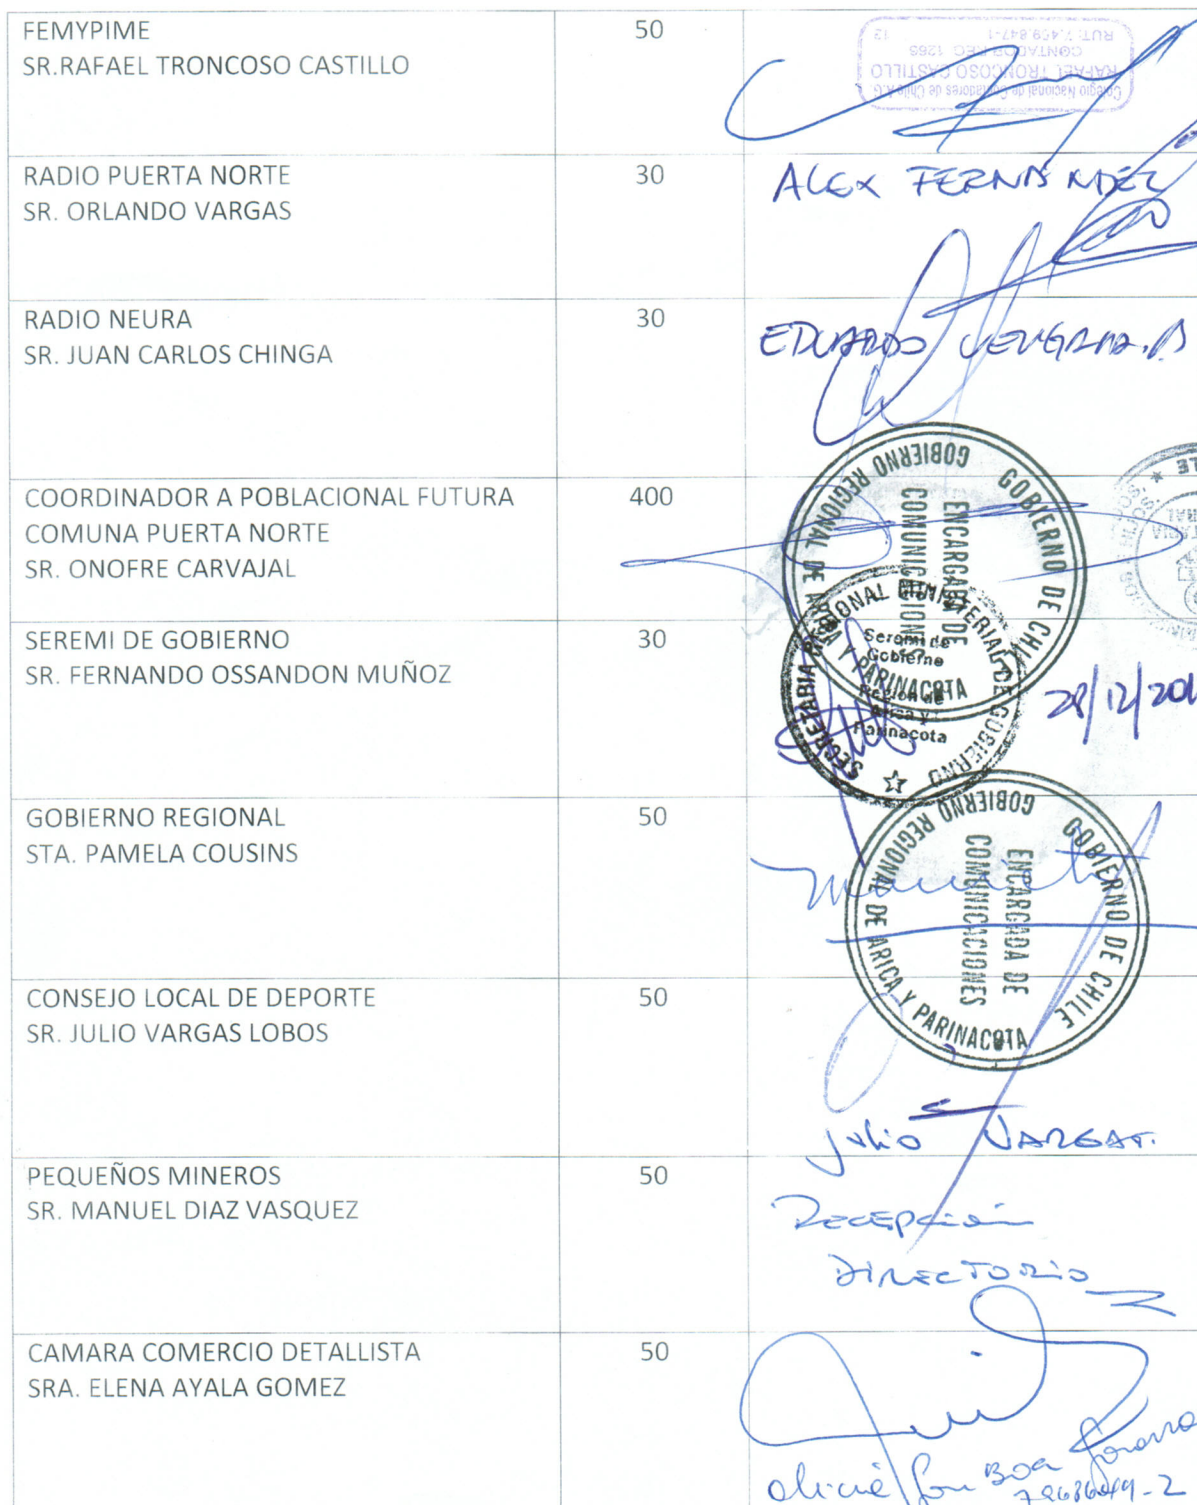 FEMYPIME
SR.RAFAEL TRONCOSO CASTILLO
50
Colegio Nacional de Contadores de Chile A.G.
RAFAEL TRONCOSO CASTILLO
CONTADOR REG 1265
RUT: 7.459.847-1 12
RADIO PUERTA NORTE
SR. ORLANDO VARGAS
30
ALEX FERNANDEZ
RADIO NEURA
SR. JUAN CARLOS CHINGA
30
EDUARDO
COORDINADOR A POBLACIONAL FUTURA
COMUNA PUERTA NORTE
SR. ONOFRE CARVAJAL
400
GOBIERNO DE CHILE
GOBIERNO REGIONAL DE ARICA Y PARINACOTA
ENCARGADA DE
COMUNICACIONES
SEREMI DE GOBIERNO
SR. FERNANDO OSSANDON MUÑOZ
30
SECRETARIA REGIONAL MINISTERIAL DE GOBIERNO
Seremi de
Gobierno
Región de
Arica y
Parinacota
28/12/201
GOBIERNO REGIONAL
STA. PAMELA COUSINS
50
GOBIERNO DE CHILE
GOBIERNO REGIONAL DE ARICA Y PARINACOTA
ENCARGADA DE
COMUNICACIONES
CONSEJO LOCAL DE DEPORTE
SR. JULIO VARGAS LOBOS
50
Julio VARGAS.
PEQUEÑOS MINEROS
SR. MANUEL DIAZ VASQUEZ
50
Recepción
DIRECTORIO
CAMARA COMERCIO DETALLISTA
SRA. ELENA AYALA GOMEZ
50